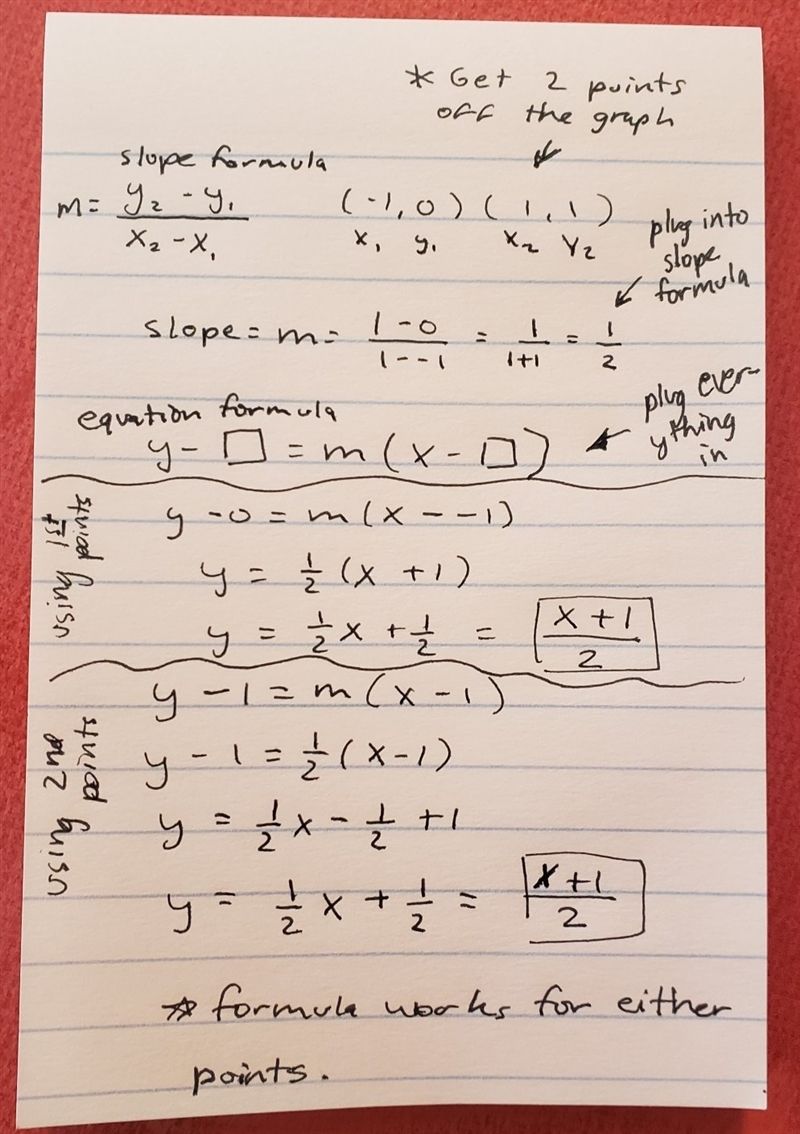 * Get 2 points
off the graph
slope formula
m = y₂ - y₁ / x₂ - x₁
(-1, 0) (1, 1)
x₁ y₁ x₂ y₂
plug into
slope
formula
slope = m = 1-0 / 1--1 = 1 / 1+1 = 1/2
equation formula
y - □ = m (x - □)
plug ever-
ything
in
using 1st
point
y - 0 = m (x - -1)
y = 1/2 (x + 1)
y = 1/2 x + 1/2 = x + 1 / 2
using 2nd
point
y - 1 = m (x - 1)
y - 1 = 1/2 (x - 1)
y = 1/2 x - 1/2 + 1
y = 1/2 x + 1/2 = x + 1 / 2
* formula works for either
points.